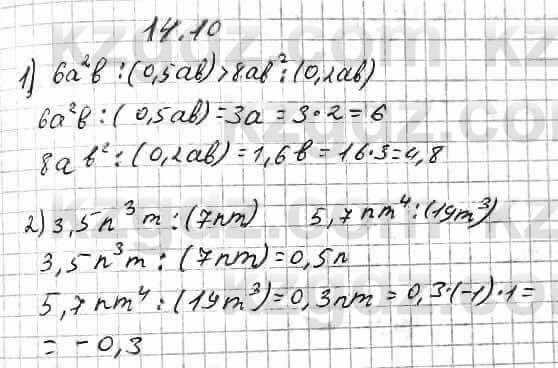 14.10
1) 6a²b : (0,5ab) > 8ab² : (0,2ab)
6a²b : (0,5ab) = 3a = 3·2 = 6
8ab² : (0,2ab) = 1,6b = 16·3 = 4,8
2) 3,5n³m : (7nm) 5,7nm⁴ : (19m³)
3,5n³m : (7nm) = 0,5n
5,7nm⁴ : (19m³) = 0,3nm = 0,3·(-1)·1 =
= -0,3